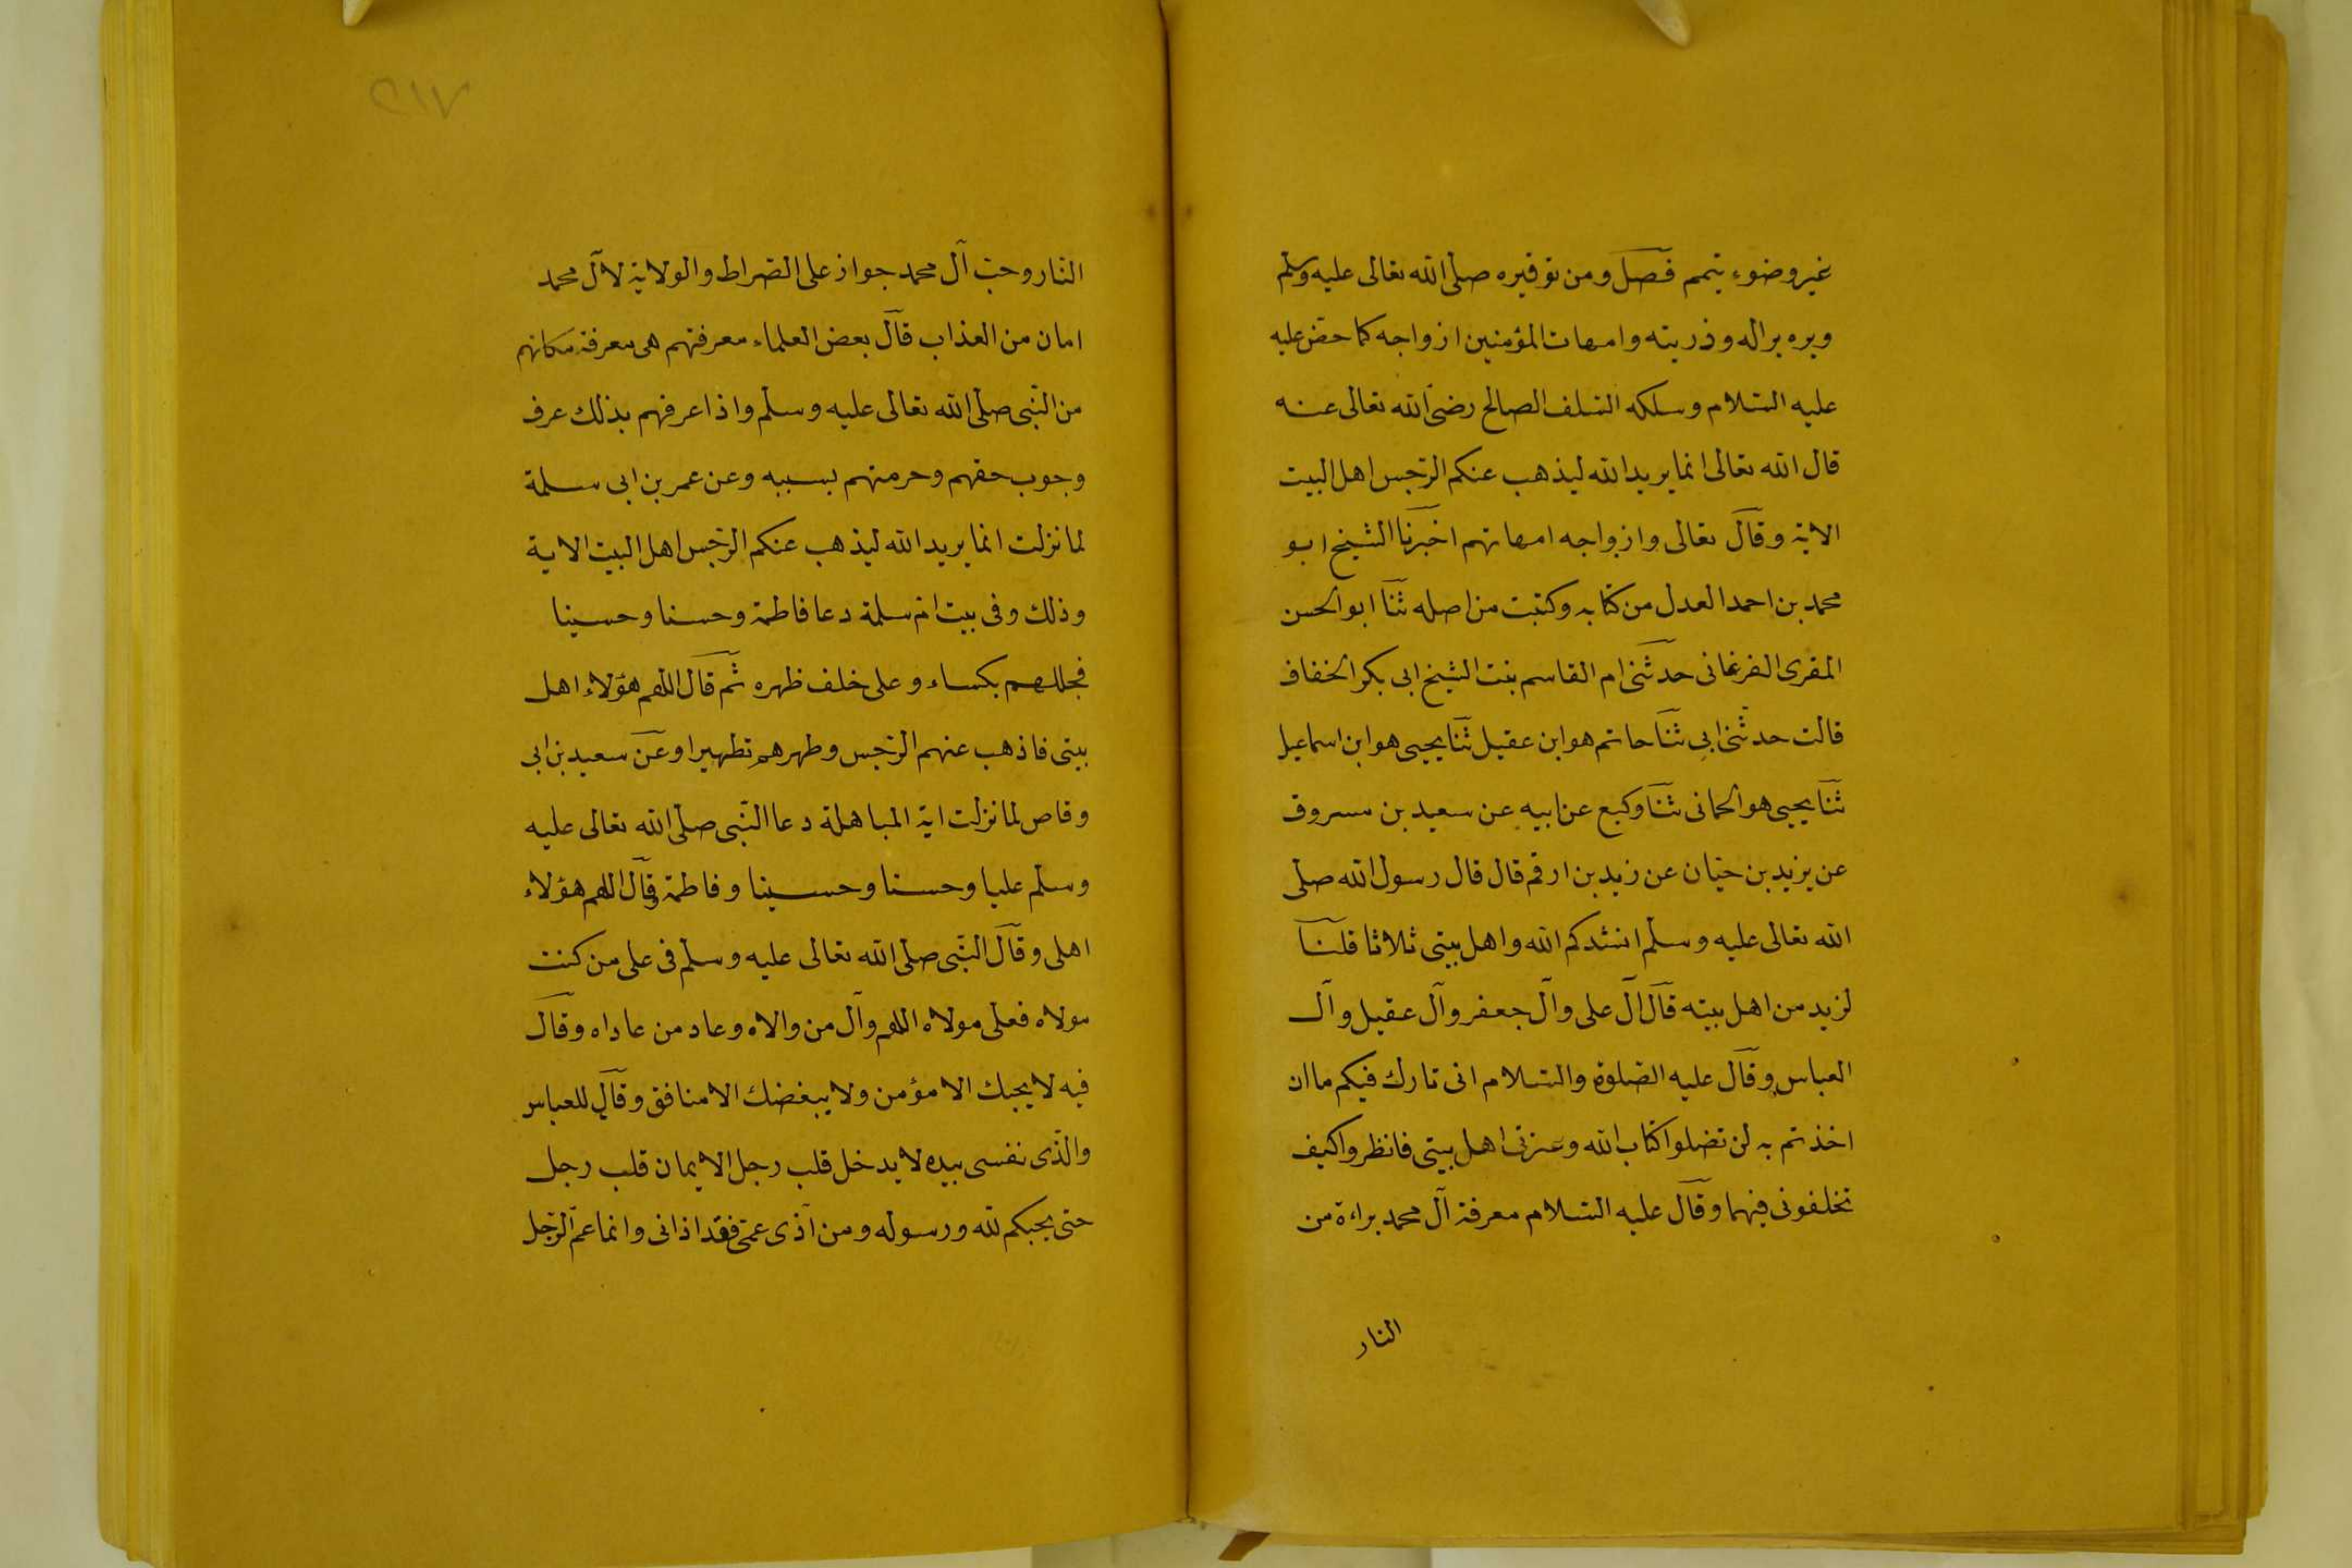 غير وضوء يتمم فصل ومن توقيره صلى الله تعالى عليه وسلم
وبره بر اله وذريته وامهات المؤمنين ازواجه كما حض عليه
عليه السلام وسلكه السلف الصالح رضى الله تعالى عنه
قال الله تعالى انما يريد الله ليذهب عنكم الرجس اهل البيت
الاية وقال تعالى وازواجه امهاتهم اخبرنا الشيخ ابو
محمد بن احمد العدل من كتابه وكتبت من اصله ثنا ابو الحسن
المقرى الفرغانى حدثتنى ام القاسم بنت الشيخ ابى بكر الخفاف
قالت حدثنى ابى ثنا حاتم هو ابن عقيل ثنا يحيى هو ابن اسماعيل
ثنا يحيى هو الحمانى ثنا وكيع عن ابيه عن سعيد بن مسروق
عن يزيد بن حيان عن زيد بن ارقم قال قال رسول الله صلى
الله تعالى عليه وسلم انشدكم الله واهل بيتى ثلاثا قلنا
لزيد من اهل بيته قال آل على وآل جعفر وآل عقيل وآل
العباس وقال عليه الصلوة والسلام انى تارك فيكم ما ان
اخذتم به لن تضلوا كتاب الله وعترتى اهل بيتى فانظروا كيف
تخلفونى فيهما وقال عليه السلام معرفة آل محمد براءة من
النار
٢١٧
النار وحب آل محمد جواز على الصراط والولاية لآل محمد
امان من العذاب قال بعض العلماء معرفتهم هى معرفة مكانهم
من النبى صلى الله تعالى عليه وسلم واذا عرفهم بذلك عرف
وجوب حقهم وحرمتهم بسببه وعن عمر بن ابى سلمة
لما نزلت انما يريد الله ليذهب عنكم الرجس اهل البيت الاية
وذلك وفى بيت ام سلمة دعا فاطمة وحسنا وحسينا
فجللهم بكساء وعلى خلف ظهره ثم قال اللهم هؤلاء اهل
بيتى فاذهب عنهم الرجس وطهرهم تطهيرا وعن سعيد بن ابى
وقاص لما نزلت اية المباهلة دعا النبى صلى الله تعالى عليه
وسلم عليا وحسنا وحسينا وفاطمة وقال اللهم هؤلاء
اهلى وقال النبى صلى الله تعالى عليه وسلم فى على من كنت
مولاه فعلى مولاه اللهم وآل من والاه وعاد من عاداه وقال
فيه لا يحبك الا مؤمن ولا يبغضك الا منافق وقال للعباس
والذى نفسى بيده لا يدخل قلب رجل الايمان قلب رجل
حتى يحبكم لله ورسوله ومن آذى عمى فقد اذانى وانما عم الرجل